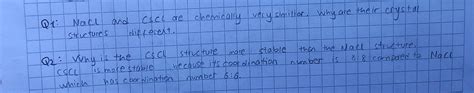 Q1: NaCl and CsCl are chemically very similar. Why are their crystal
structures different.
Q2: Why is the CsCl structure more stable than the NaCl structure.
CsCl is more stable because its coordination number is 8:8 compared to NaCl
which has coordination number 6:6.